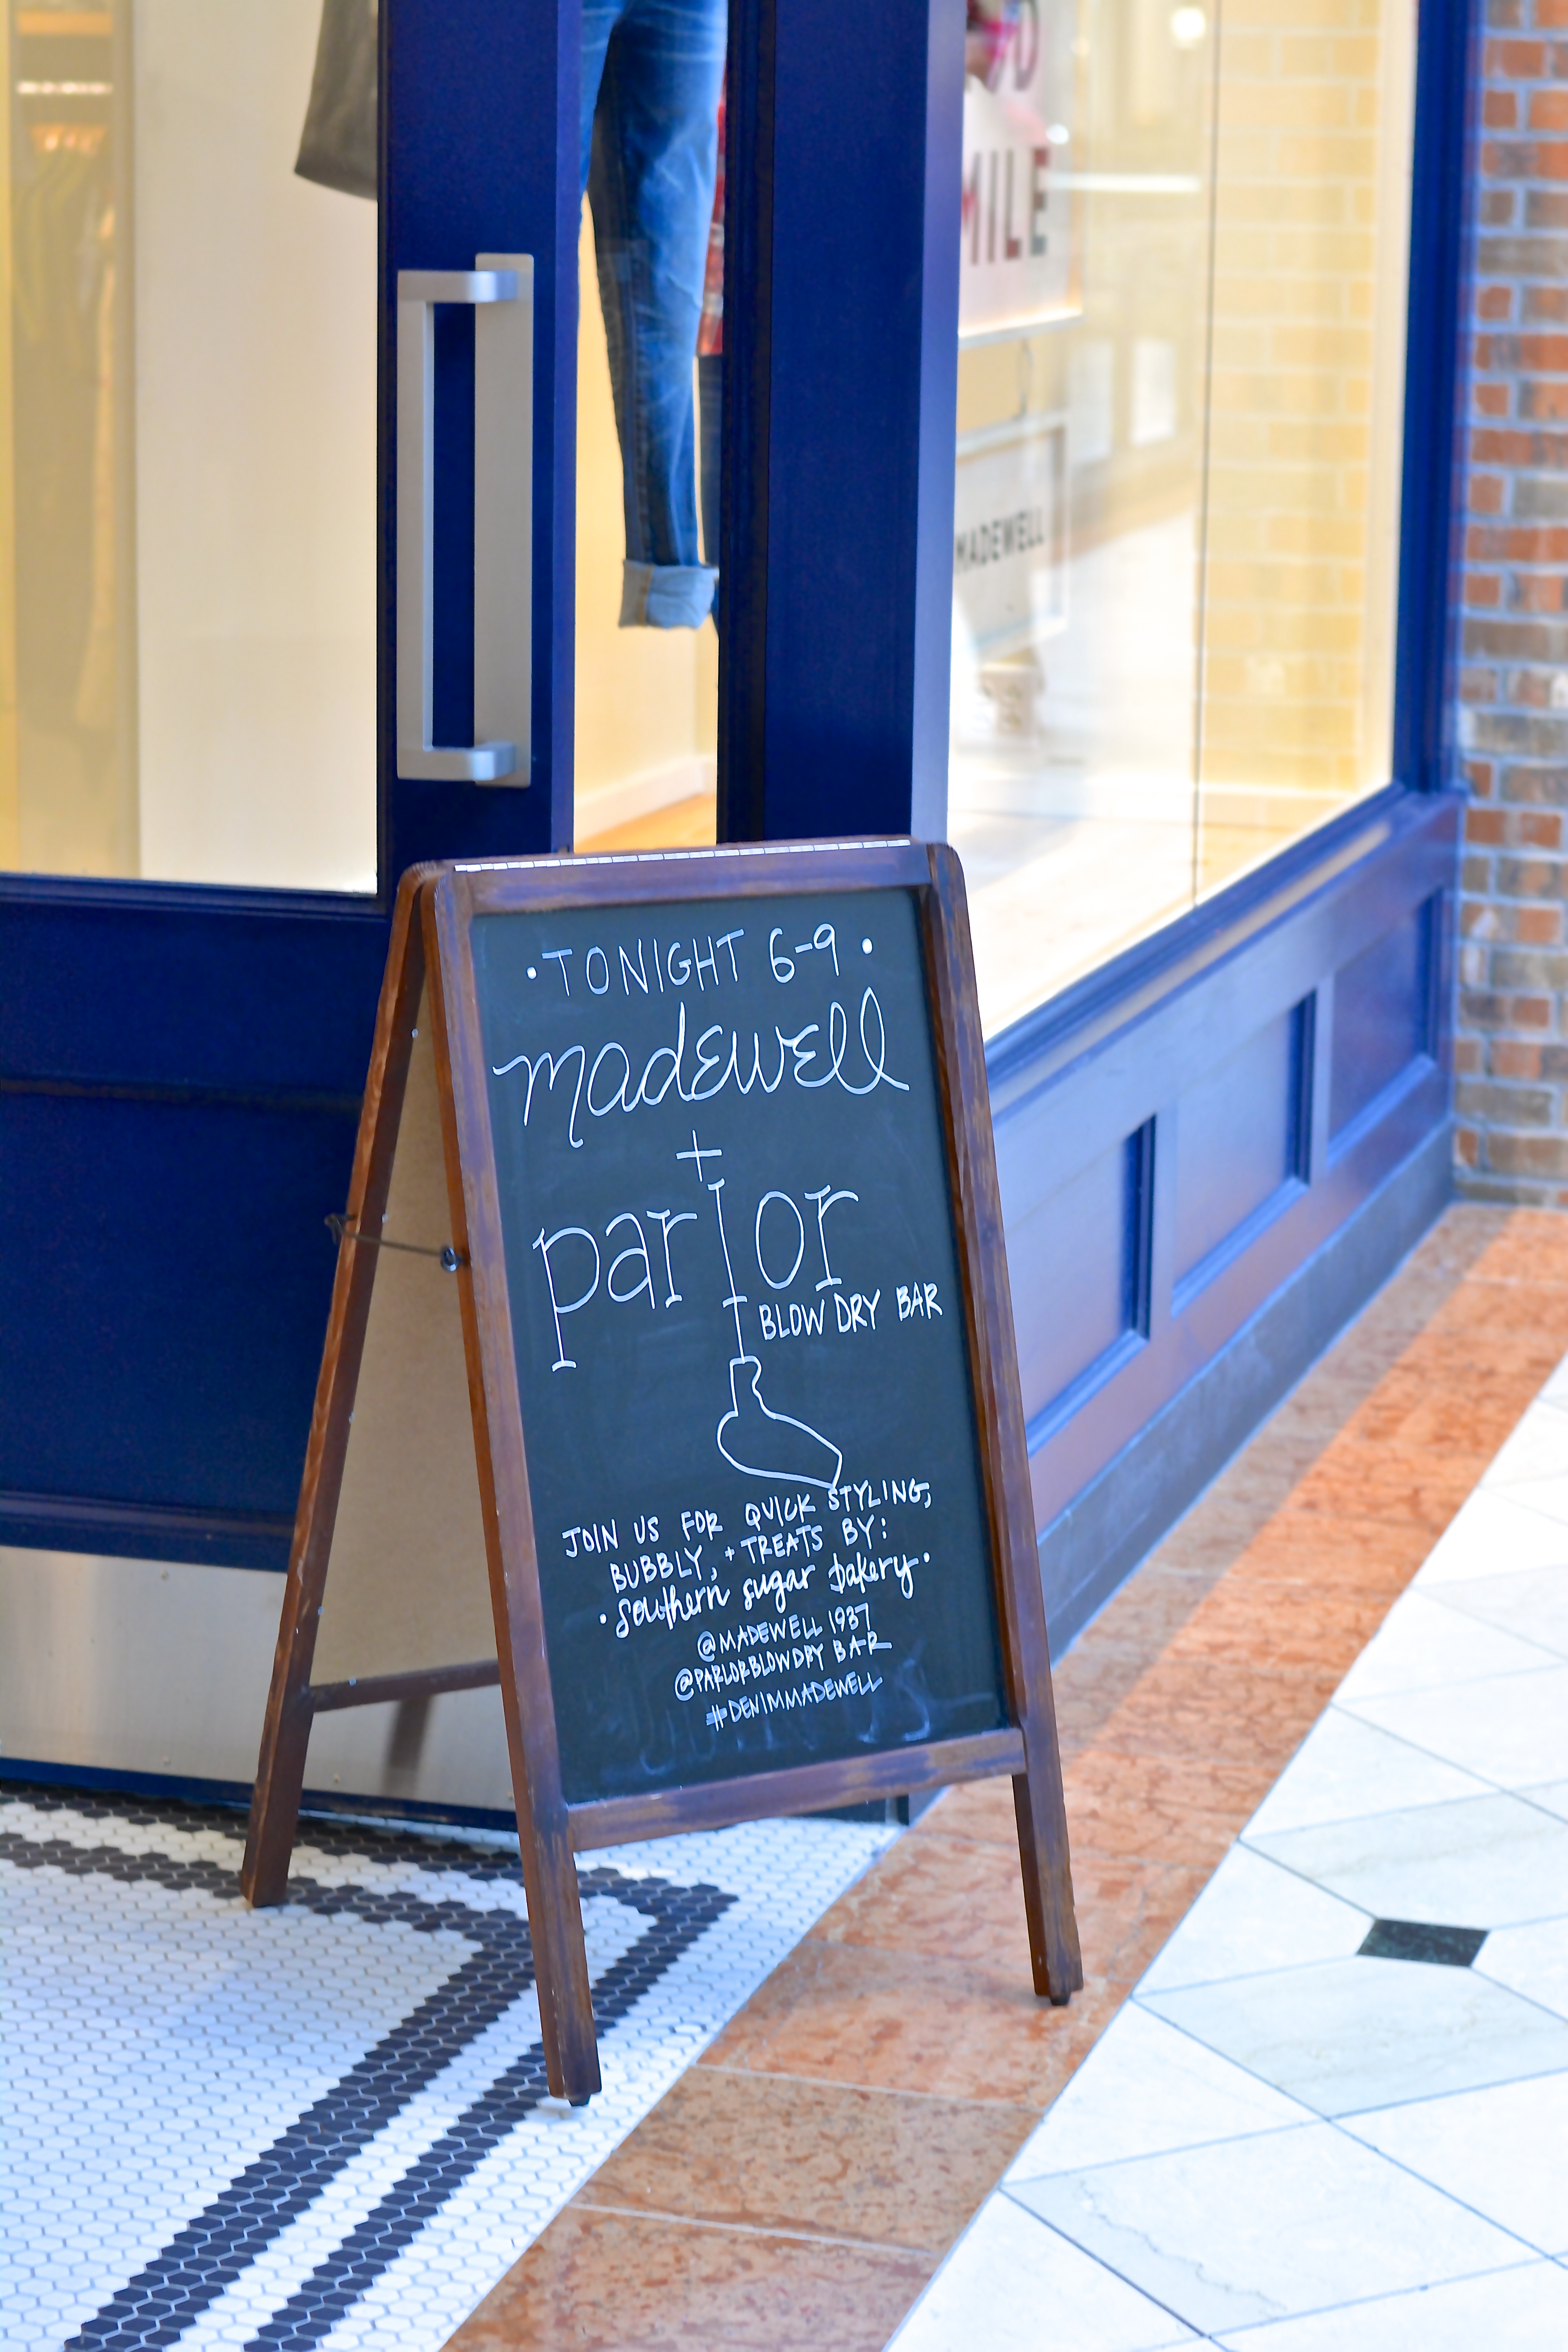 MILE
MADEWELL
• TONIGHT 6-9 •
madewell
+
parlor
BLOW DRY BAR
JOIN US FOR QUICK STYLING,
BUBBLY, + TREATS BY:
• Southern sugar bakery •
@MADEWELL1937
@PARLORBLOWDRYBAR
#DENIMMADEWELL